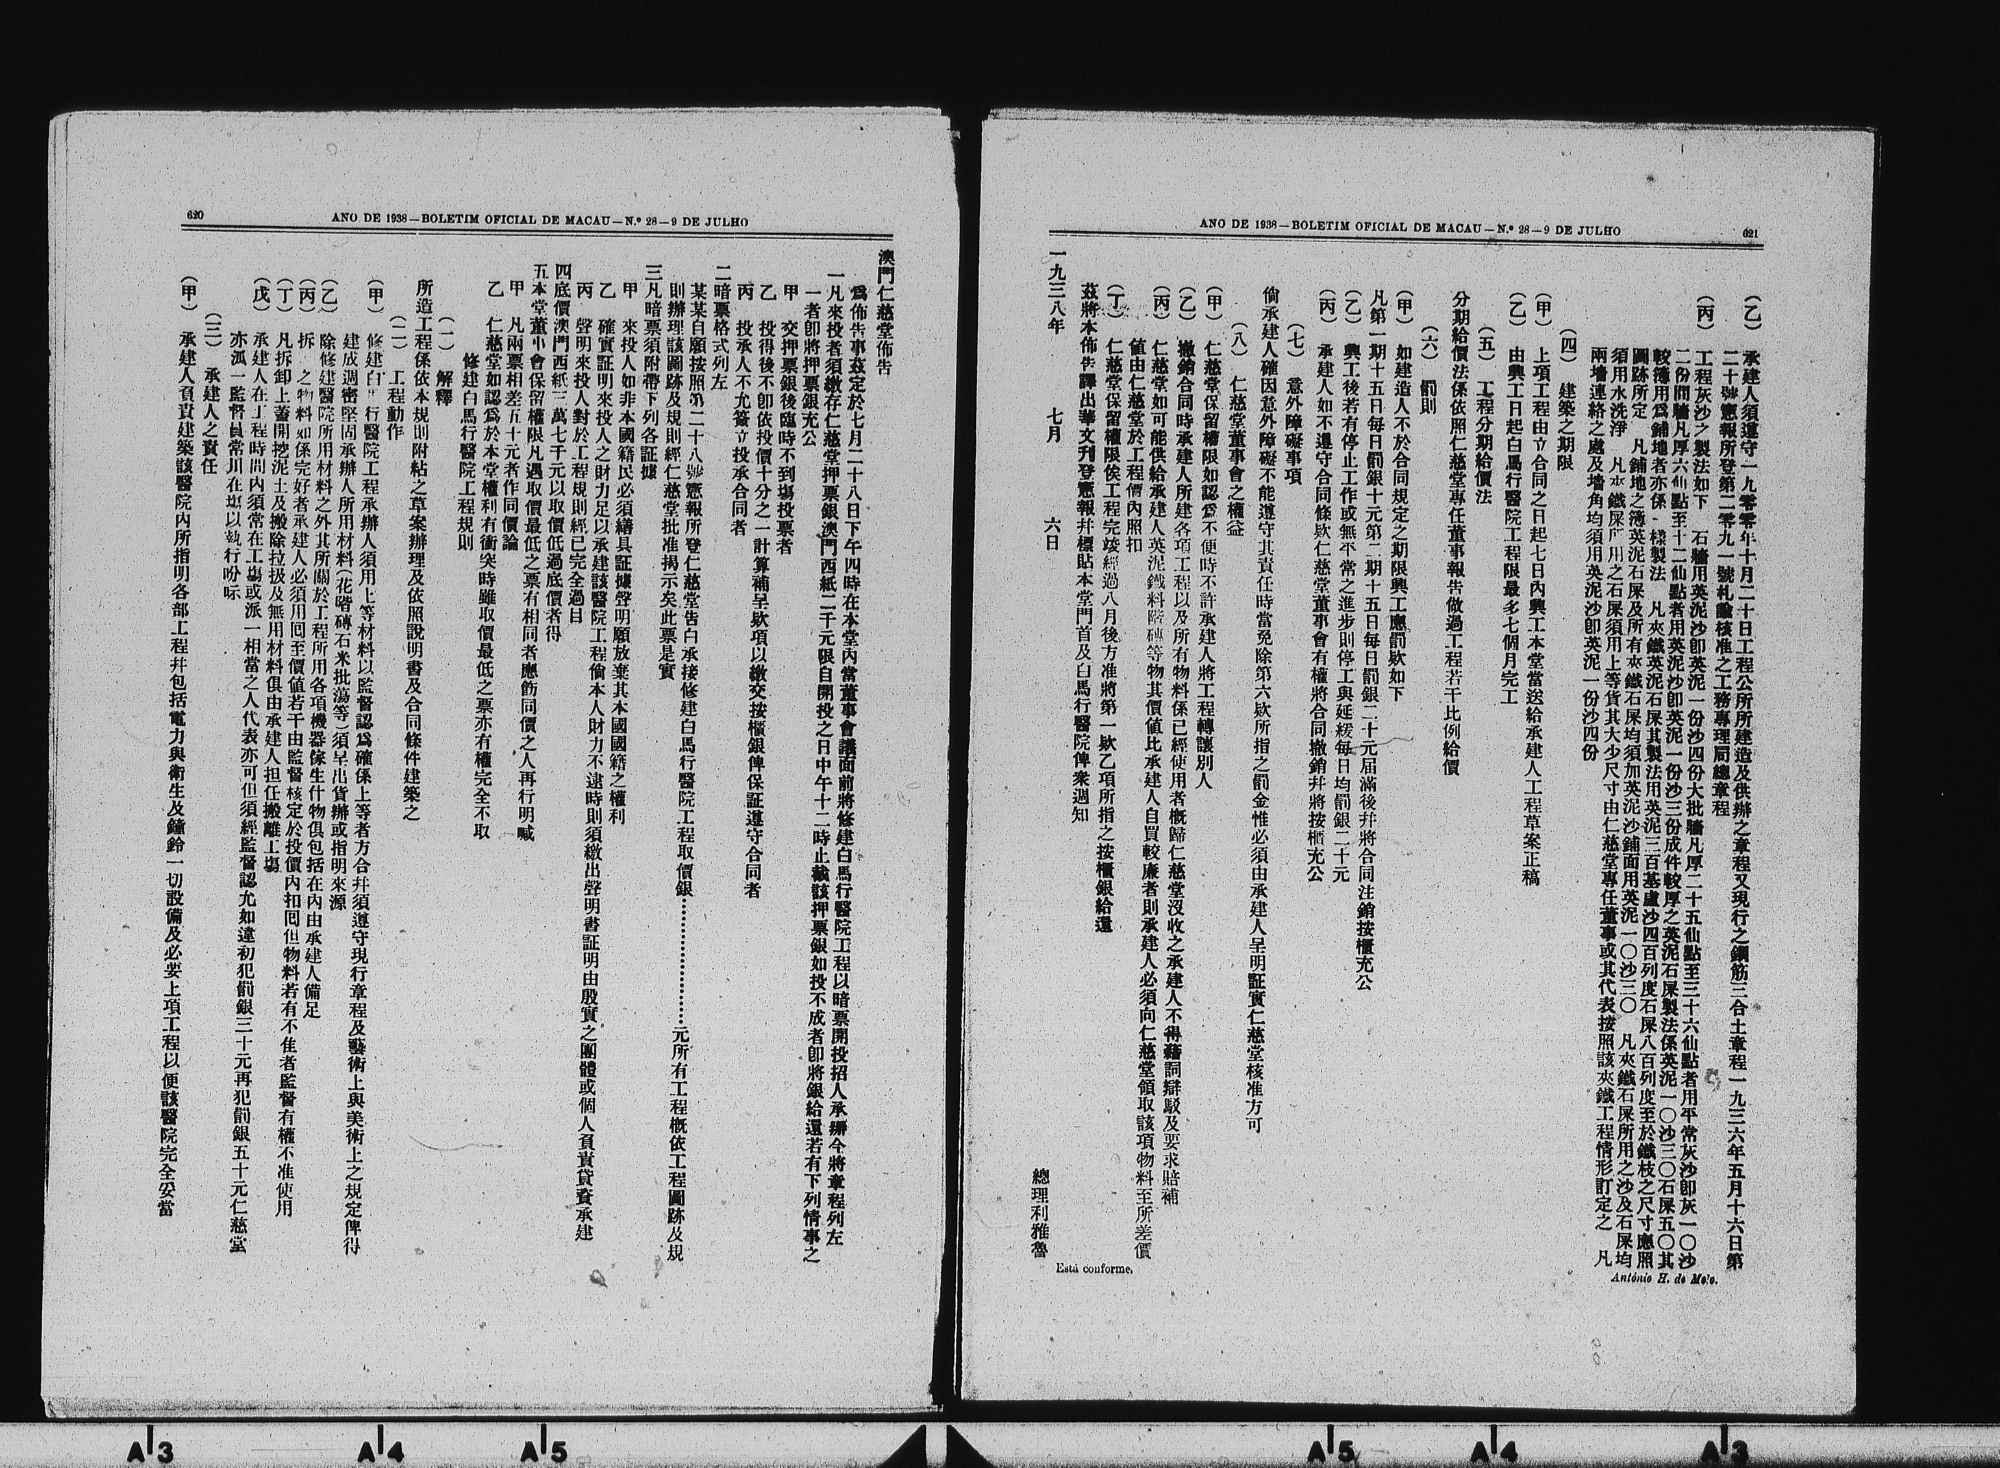 620
ANO DE 1938—BOLETIM OFICIAL DE MACAU—N.º 28—9 DE JULHO
澳門仁慈堂佈告
爲佈告事茲定於七月二十八日下午四時在本堂內當董事會議面前將修建白馬行醫院工程以暗票開投招人承辦今將章程列左
一凡來投者須繳存仁慈堂押票銀澳門西紙二千元限自開投之日中午十二時止截該押票銀如投不成者卽將銀給還若有下列情事之
一者卽將押票銀充公
甲　交押票銀後臨時不到塲投票者
乙　投得後不卽依投價十分之一計算補呈欵項以繳交按櫃銀俾保証遵守合同者
丙　投承人不允簽立投承合同者
二暗票格式列左
某某自願按照第二十八號憲報所登仁慈堂告白承接修建白馬行醫院工程取價銀………………元所有工程概依工程圖跡及規
則辦理該圖跡及規則經仁慈堂批准揭示矣此票是實
三凡暗票須附帶下列各証據
甲　來投人如非本國籍民必須繕具証據聲明願放棄其本國國籍之權利
乙　確實証明來投人之財力足以承建該醫院工程倘本人財力不逮時則須繳出聲明書証明由殷實之團體或個人負責貸資承建
丙　聲明來投人對於工程規則經已完全過目
四底價澳門西紙三萬七千元以取價低過底價者得
五本堂董事會保留權限凡遇取價最低之票有相同者應飭同價之人再行明喊
甲　凡兩票相差五十元者作同價論
乙　仁慈堂如認爲於本堂權利有衝突時雖取價最低之票亦有權完全不取
修建白馬行醫院工程規則
（一）　解釋
所造工程係依本規則附粘之草案辦理及依照說明書及合同條件建築之
（二）　工程動作
（甲）　修建白馬行醫院工程承辦人須用上等材料以監督認爲確係上等者方合幷須遵守現行章程及藝術上與美術上之規定俾得
建成週密堅固承辦人所用材料（花階磚石米批蕩等）須呈出貨辦或指明來源
（乙）　除修建醫院所用材料之外其所關於工程所用各項機器傢生什物俱包括在內由承建人備足
（丙）　拆　之物料如係完好者承建人必須用囘至價値若干由監督核定於投價內扣囘但物料若有不佳者監督有權不准使用
（丁）　凡拆卸上蓋開挖泥土及搬除垃圾及無用材料俱由承建人担任搬離工塲
（戊）　承建人在工程時間內須常在工塲或派一相當之人代表亦可但須經監督認允如違初犯罰銀三十元再犯罰銀五十元仁慈堂
亦派一監督員常川在塲以執行吩咐
（三）　承建人之責任
（甲）　承建人負責建築該醫院內所指明各部工程幷包括電力與衛生及鐘鈴一切設備及必要上項工程以便該醫院完全妥當
ANO DE 1938—BOLETIM OFICIAL DE MACAU—N.º 28—9 DE JULHO
621
（乙）　承建人須遵守一九零零年十月二十日工程公所所建造及供辦之章程又現行之鋼筋三合土章程一九三六年五月十六日第
二十號憲報所登第二零九一號札諭核准之工務專理局總章程
（丙）　工程灰沙之製法如下　石牆用英泥沙卽英泥一份沙四份大批牆凡厚二十五仙點至三十六仙點者用平常灰沙卽灰一〇沙
二份間牆凡厚六仙點至十二仙點者用英泥沙卽英泥一份沙三份成件較厚之英泥石屎製法係英泥一〇沙三〇石屎五〇其
較薄用爲鋪地者亦係一樣製法　凡夾鐵英泥石屎其製法用英泥三百基盧沙四百列度石屎八百列度至於鐵枝之尺寸應照
圖跡所定　凡鋪地之薄英泥石屎及所有夾鐵石屎均須加英泥沙鋪面用英泥一〇沙三〇　凡夾鐵石屎所用之沙及石屎均
須用水洗淨　凡夾鐵屎所用之石屎須用上等貨其大少尺寸由仁慈堂專任董事或其代表按照該夾鐵工程情形訂定之　凡
兩墻連絡之處及墻角均須用英泥沙卽英泥一份沙四份
（四）　建築之期限
（甲）　上項工程由立合同之日起七日內興工本堂當送給承建人工程草案正稿
（乙）　由興工日起白馬行醫院工程限最多七個月完工
（五）　工程分期給價法
分期給價法係依照仁慈堂專任董事報告做過工程若干比例給價
（六）　罰則
（甲）　如建造人不於合同規定之期限興工應罰欵如下
凡第一期十五日每日罰銀十元第二期十五日每日罰銀二十元屆滿後幷將合同注銷按櫃充公
（乙）　興工後若有停止工作或無平常之進步則停工與延緩每日均罰銀二十元
（丙）　承建人如不遵守合同條欵仁慈堂董事會有權將合同撤銷幷將按櫃充公
（七）　意外障礙事項
倘承建人確因意外障礙不能遵守其責任時當免除第六欵所指之罰金惟必須由承建人呈明証實仁慈堂核准方可
（八）　仁慈堂董事會之權益
（甲）　仁慈堂保留權限如認爲不便時不許承建人將工程轉讓別人
（乙）　撤銷合同時承建人所建各項工程以及所有物料係已經使用者概歸仁慈堂沒收之承建人不得藉詞辯駁及要求賠補
（丙）　仁慈堂如可能供給承建人英泥鐵料階磚等物其價値比承建人自買較廉者則承建人必須向仁慈堂領取該項物料至所差價
値由仁慈堂於工程價內照扣
（丁）　仁慈堂保留權限俟工程完竣經過八月後方准將第一欵乙項所指之按櫃銀給還
茲將本佈告譯出華文刋登憲報幷標貼本堂門首及白馬行醫院俾衆週知
一九三八年　七月　六日
總理利雅魯
Está conforme,
António H. de Melo.
A3 A4 A5 A5 A4 A3